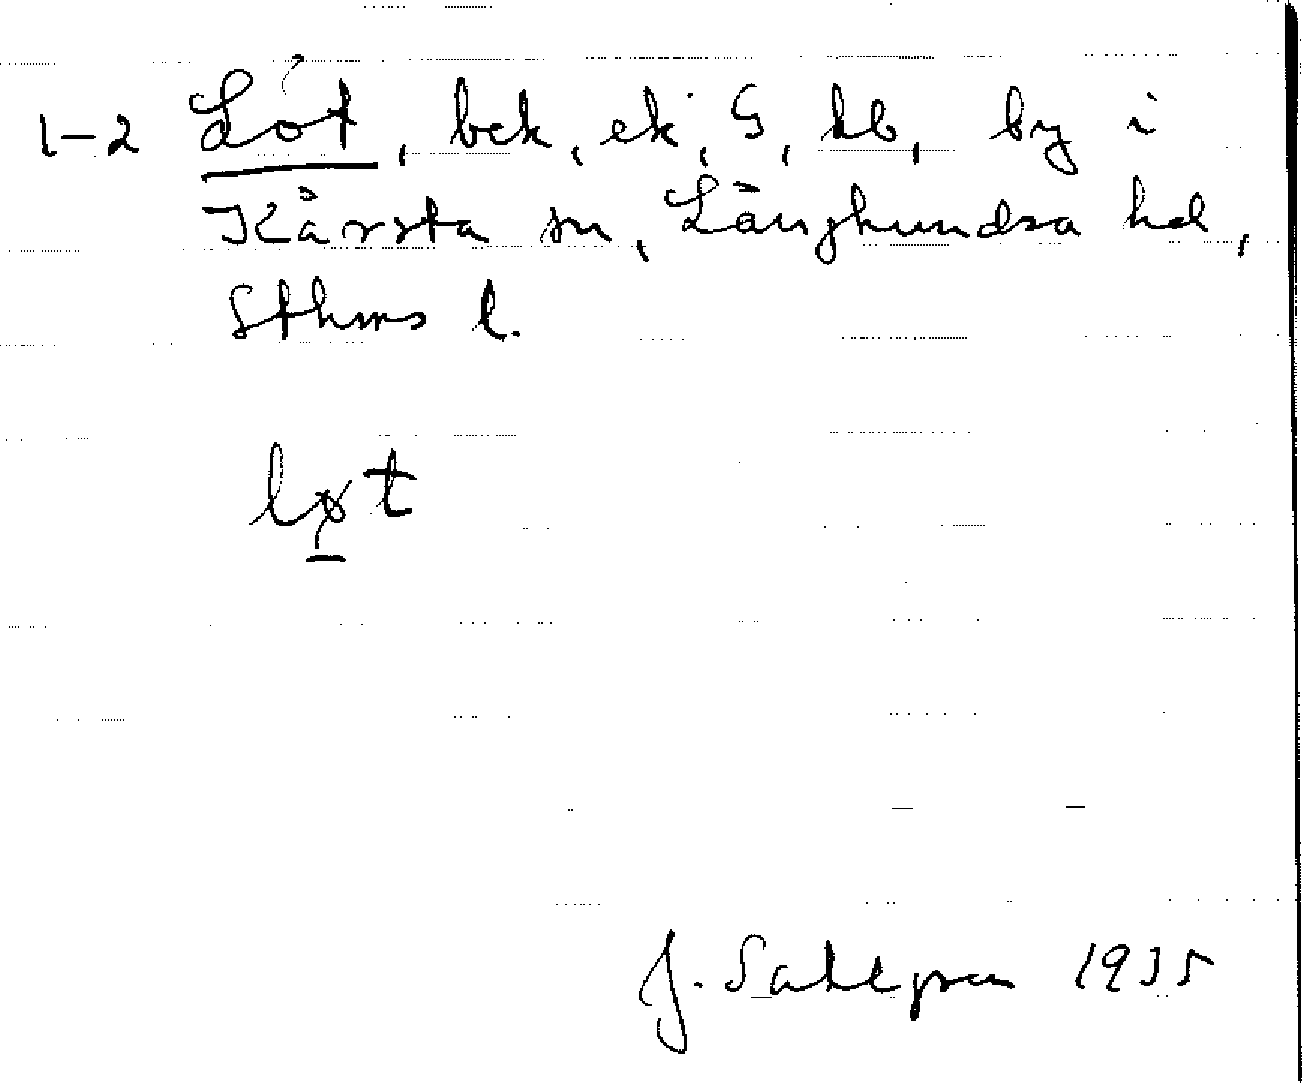 1-2 Löt, bek, ek, G, hb, by i
Kårsta sn, Långhundra hd,
Sthms l.
løt
J. Sahlgren 1935